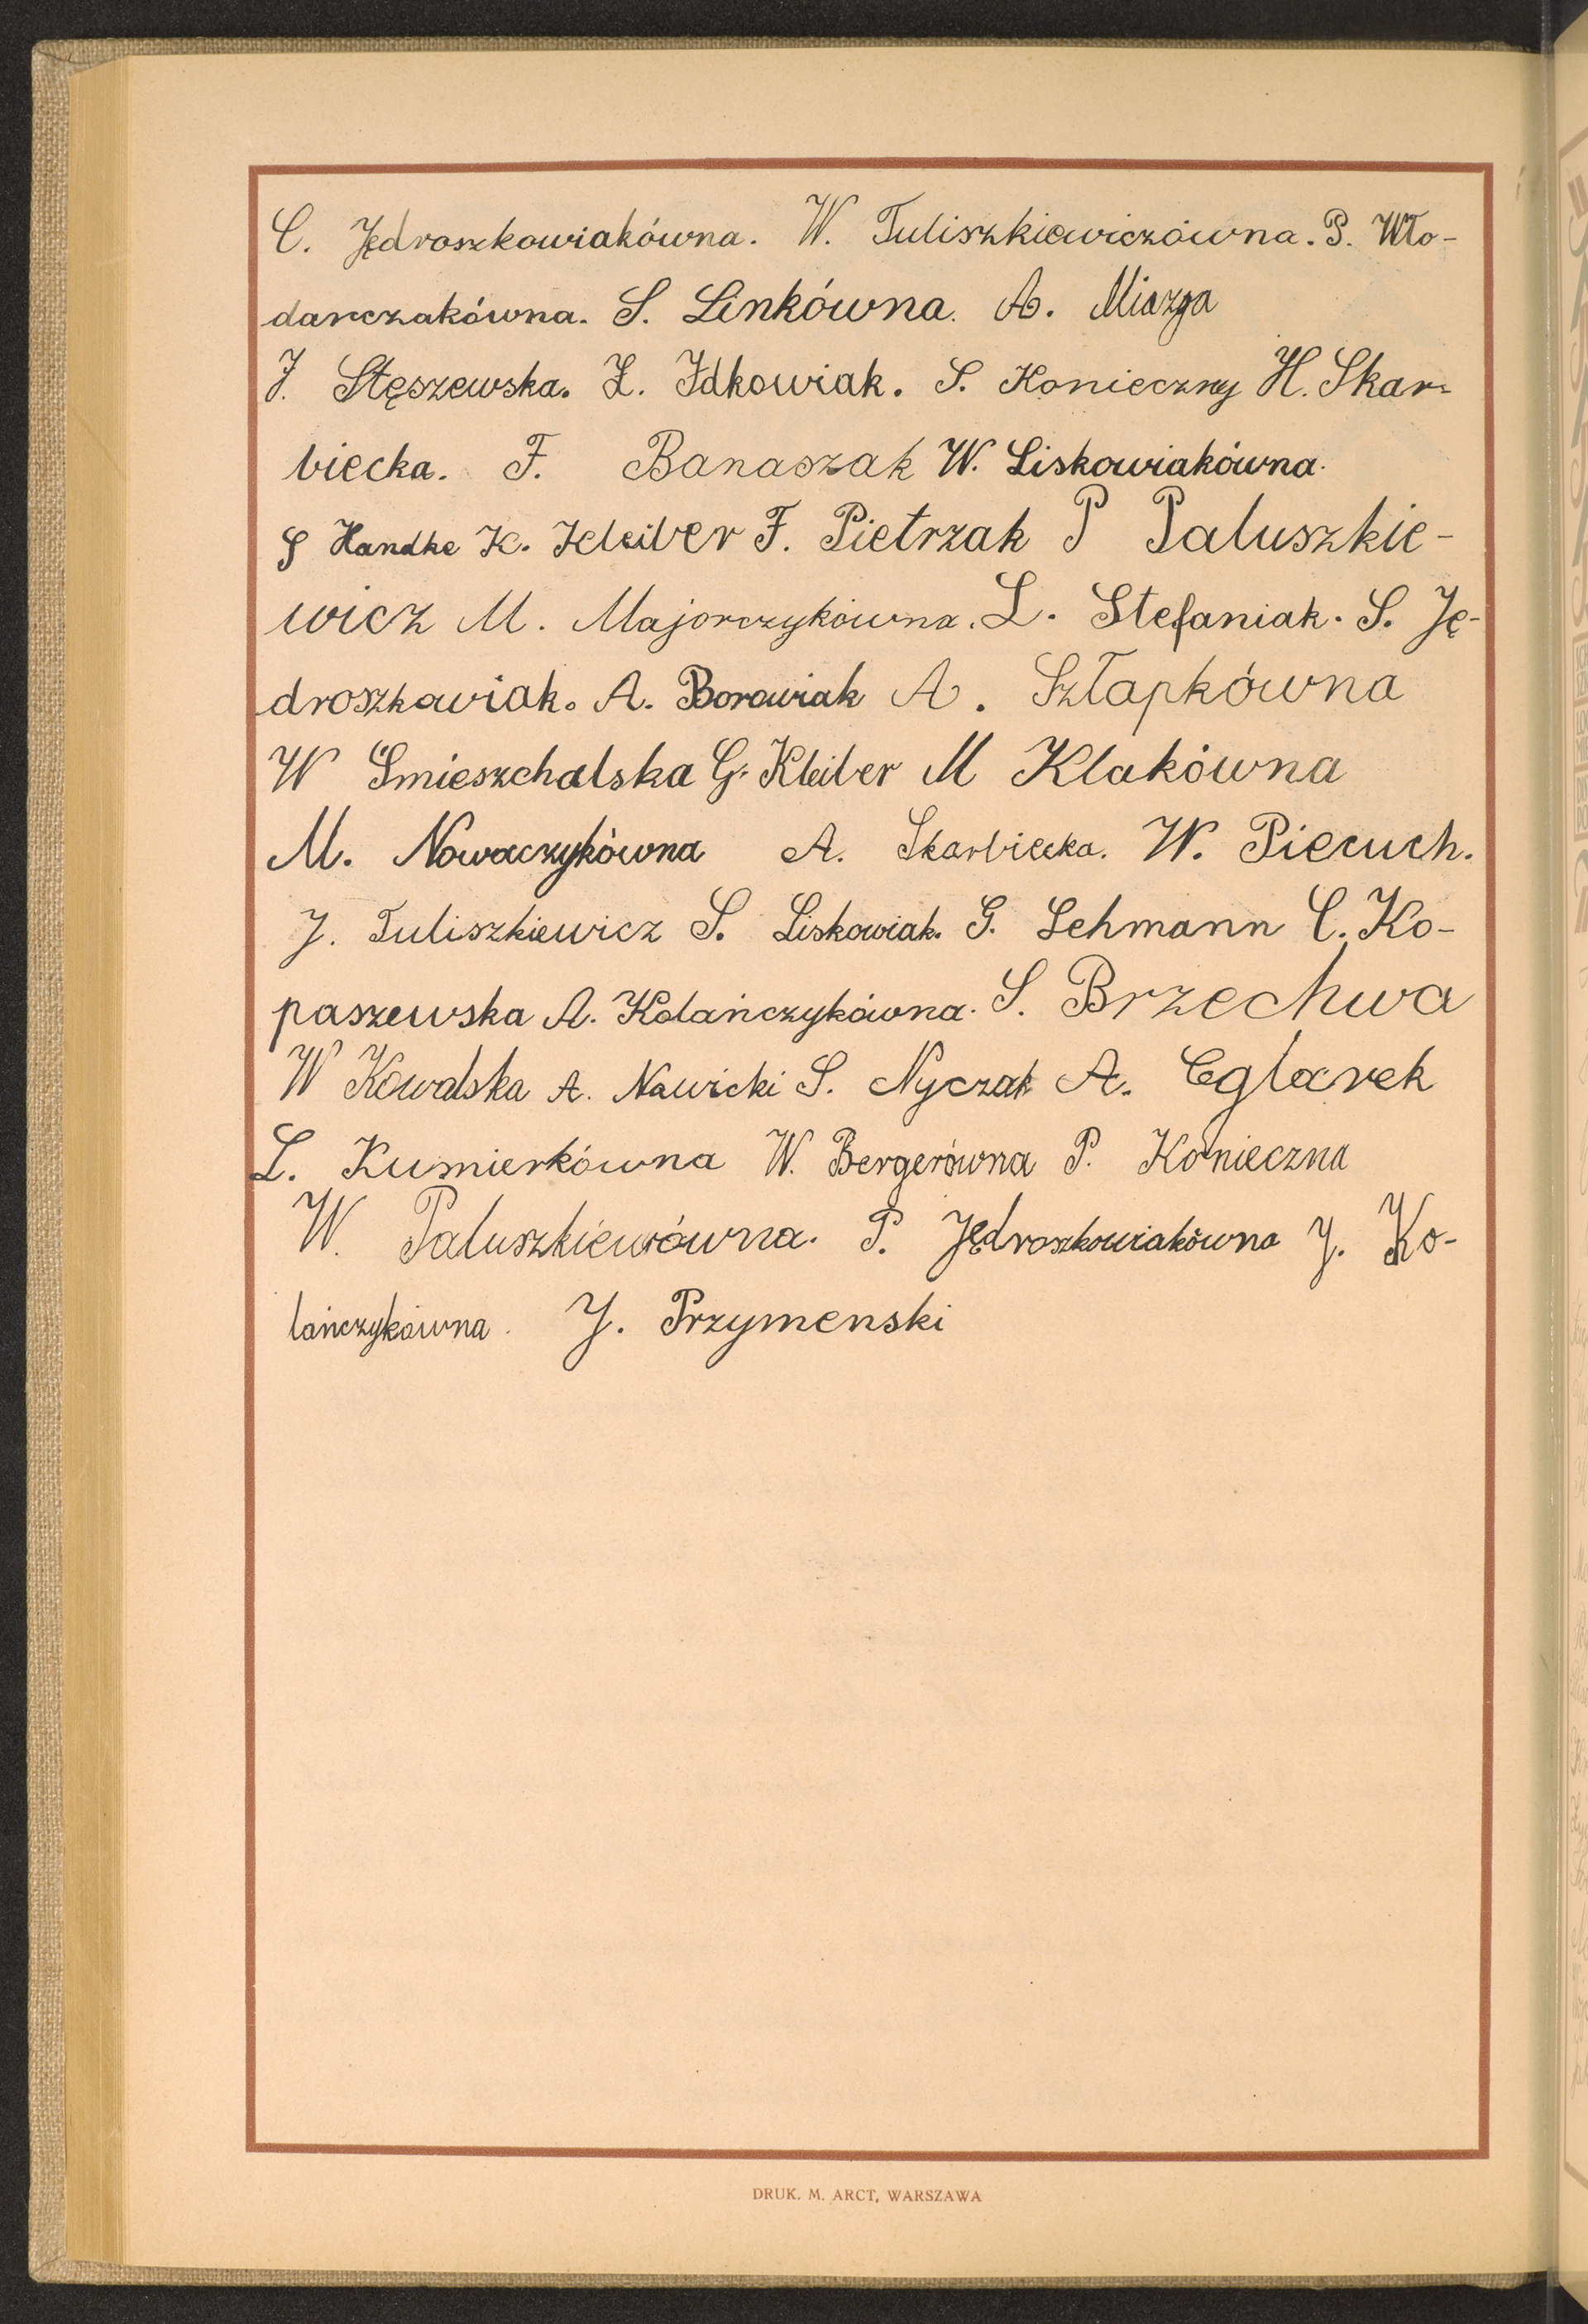 C. Jędroszkowiakówna. W. Tuliszkiewiczówna. P. Wło-
darczakówna. S. Linkówna. A. Miazga
J. Stęszewska. Z. Idkowiak. S. Konieczny H. Skar-
biecka. F. Banaszak W. Liskowiakówna.
S Handke K. Kleiber F. Pietrzak P Paluszkie-
wicz M. Majorczykówna. L. Stefaniak. S. Ję-
droszkowiak. A. Borowiak A. Szłapkówna
W Śmieszchalska G. Kleiber M Klakówna
M. Nowaczykówna A. Skarbiecka. W. Piecuch.
J. Tuliszkiewicz S. Liskowiak. G. Lehmann C. Ko-
paszewska A. Kolańczykówna. S. Brzechwa
W Kowalska A. Nawicki S. Nyczak A. Cglarek
L. Kusmierkówna W. Bergerówna P. Konieczna
W. Paluszkiewówna. P. Jędroszkowiakówna J. Ko-
lańczykówna. J. Przymenski
DRUK. M. ARCT, WARSZAWA